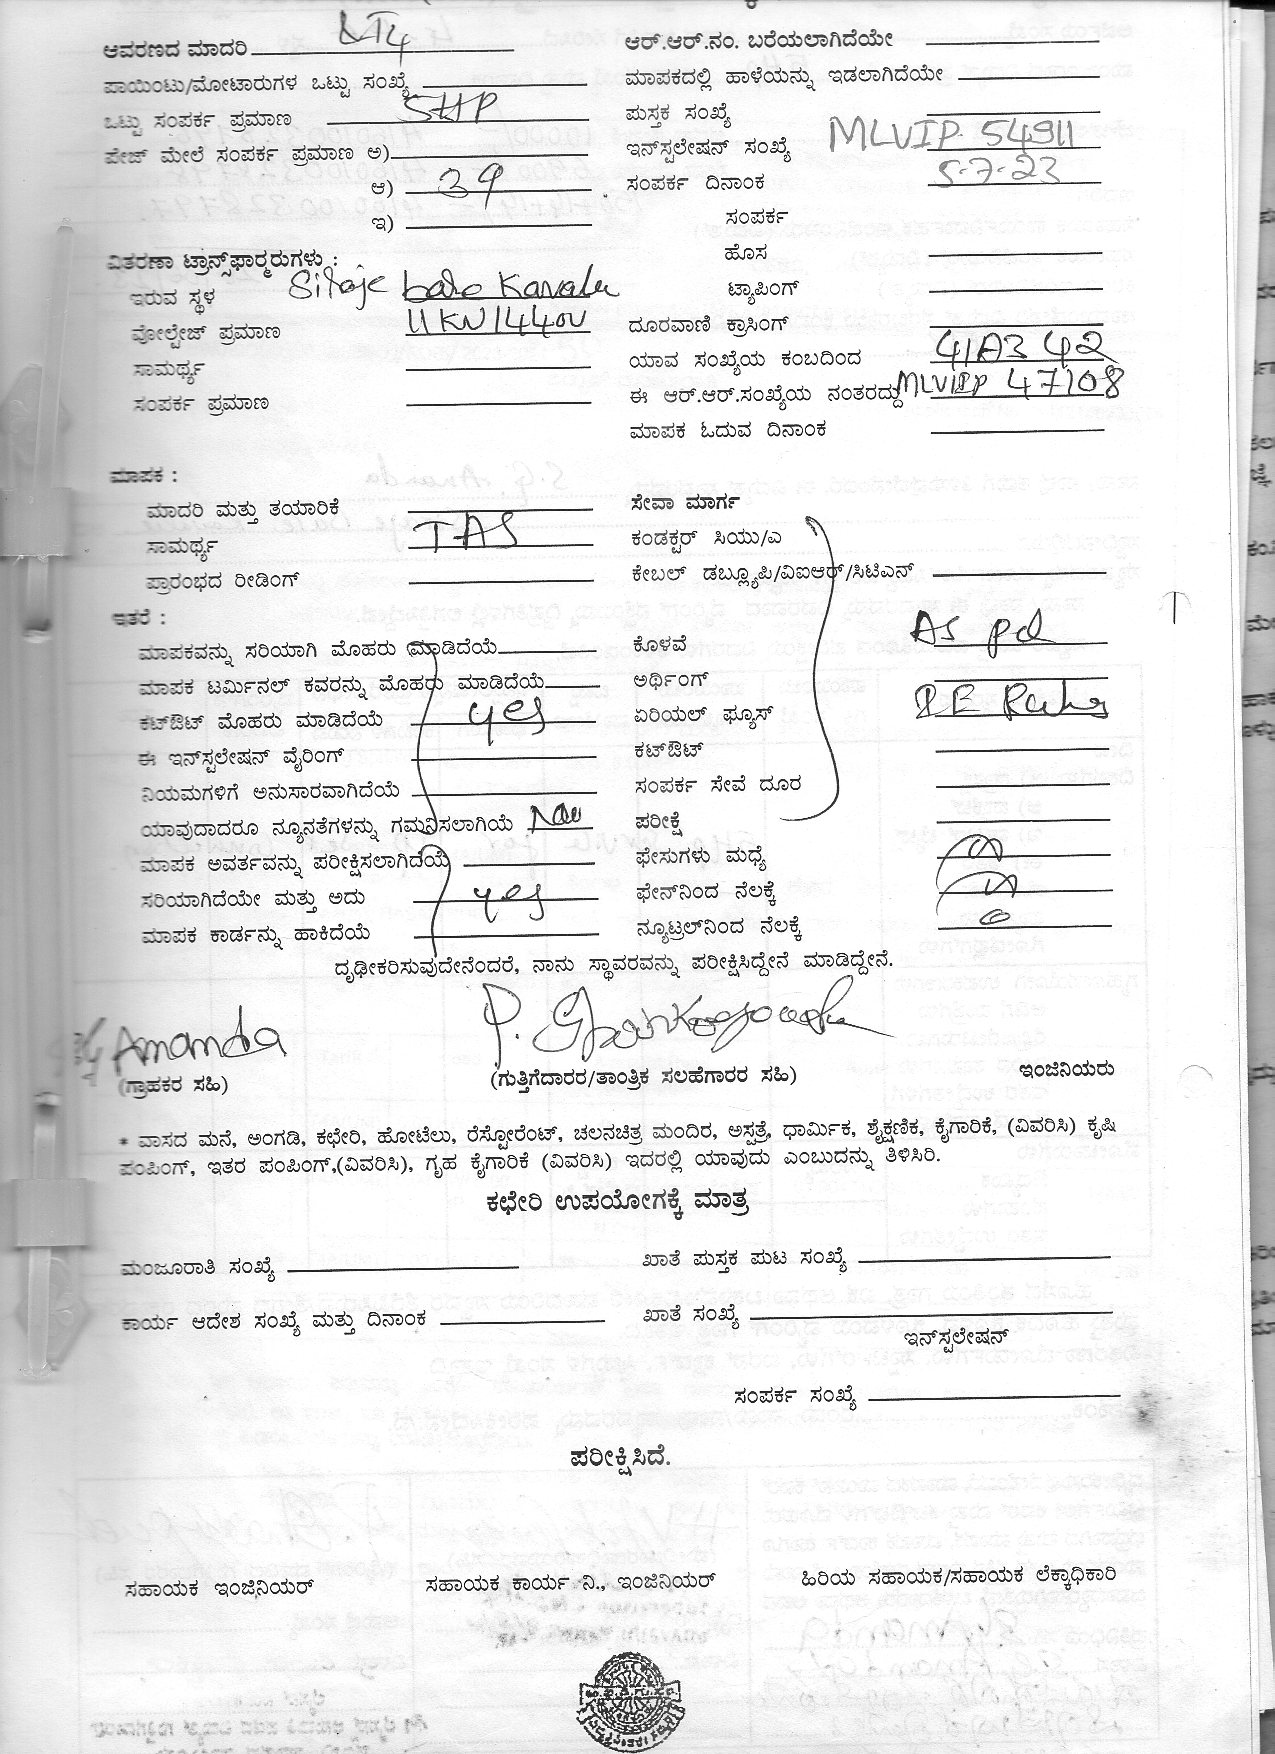 ಆವರಣದ ಮಾದರಿ LT4
ಪಾಯಿಂಟು/ಮೋಟಾರುಗಳ ಒಟ್ಟು ಸಂಖ್ಯೆ
ಒಟ್ಟು ಸಂಪರ್ಕ ಪ್ರಮಾಣ 5HP
ಪೇಜ್ ಮೇಲೆ ಸಂಪರ್ಕ ಪ್ರಮಾಣ ಅ)
ಆ) 39
ಇ)
ವಿತರಣಾ ಟ್ರಾನ್ಸ್‌ಫಾರ್‍ಮರುಗಳು :
ಇರುವ ಸ್ಥಳ
ವೋಲ್ಟೇಜ್ ಪ್ರಮಾಣ 11KV/440V
ಸಾಮರ್ಥ್ಯ
ಸಂಪರ್ಕ ಪ್ರಮಾಣ
ಆರ್.ಆರ್.ನಂ. ಬರೆಯಲಾಗಿದೆಯೇ
ಮಾಪಕದಲ್ಲಿ ಹಾಳೆಯನ್ನು ಇಡಲಾಗಿದೆಯೇ
ಪುಸ್ತಕ ಸಂಖ್ಯೆ
ಇನ್‌ಸ್ಟಲೇಷನ್ ಸಂಖ್ಯೆ MLVIP 54911
ಸಂಪರ್ಕ ದಿನಾಂಕ 5-7-23
ಸಂಪರ್ಕ
ಹೊಸ
ಟ್ಯಾಪಿಂಗ್
ದೂರವಾಣಿ ಕ್ರಾಸಿಂಗ್
ಯಾವ ಸಂಖ್ಯೆಯ ಕಂಬದಿಂದ
ಈ ಆರ್.ಆರ್.ಸಂಖ್ಯೆಯ ನಂತರದ್ದು MLVIP 47108
ಮಾಪಕ ಓದುವ ದಿನಾಂಕ
ಮಾಪಕ :
ಮಾದರಿ ಮತ್ತು ತಯಾರಿಕೆ
ಸಾಮರ್ಥ್ಯ TAS
ಪ್ರಾರಂಭದ ರೀಡಿಂಗ್
ಇತರೆ :
ಮಾಪಕವನ್ನು ಸರಿಯಾಗಿ ಮೊಹರು ಮಾಡಿದೆಯೆ
ಮಾಪಕ ಟರ್ಮಿನಲ್ ಕವರನ್ನು ಮೊಹರು ಮಾಡಿದೆಯೆ
ಕಟ್‌ಔಟ್ ಮೊಹರು ಮಾಡಿದೆಯೆ yes
ಈ ಇನ್‌ಸ್ಟಲೇಷನ್ ವೈರಿಂಗ್
ನಿಯಮಗಳಿಗೆ ಅನುಸಾರವಾಗಿದೆಯೆ
ಯಾವುದಾದರೂ ನ್ಯೂನತೆಗಳನ್ನು ಗಮನಿಸಲಾಗಿಯೆ
ಮಾಪಕ ಅವರ್ತವನ್ನು ಪರೀಕ್ಷಿಸಲಾಗಿದೆಯೆ
ಸರಿಯಾಗಿದೆಯೇ ಮತ್ತು ಅದು yes
ಮಾಪಕ ಕಾರ್ಡನ್ನು ಹಾಕಿದೆಯೆ
ಸೇವಾ ಮಾರ್ಗ
ಕಂಡಕ್ಟರ್ ಸಿಯು/ಎ
ಕೇಬಲ್ ಡಬ್ಲ್ಯೂಪಿ/ವಿಐಆರ್/ಸಿಟಿಎನ್
ಕೊಳವೆ AS pd
ಅರ್ಥಿಂಗ್
ಏರಿಯಲ್ ಫ್ಯೂಸ್
ಕಟ್‌ಔಟ್
ಸಂಪರ್ಕ ಸೇವೆ ದೂರ
ಪರೀಕ್ಷೆ
ಫೇಸುಗಳು ಮಧ್ಯೆ
ಫೇನ್‌ನಿಂದ ನೆಲಕ್ಕೆ
ನ್ಯೂಟ್ರಲ್‌ನಿಂದ ನೆಲಕ್ಕೆ
ದೃಢೀಕರಿಸುವುದೇನೆಂದರೆ, ನಾನು ಸ್ಥಾವರವನ್ನು ಪರೀಕ್ಷಿಸಿದ್ದೇನೆ ಮಾಡಿದ್ದೇನೆ.
Ananda
(ಗ್ರಾಹಕರ ಸಹಿ) (ಗುತ್ತಿಗೆದಾರರ/ತಾಂತ್ರಿಕ ಸಲಹೆಗಾರರ ಸಹಿ) ಇಂಜಿನಿಯರು
* ವಾಸದ ಮನೆ, ಅಂಗಡಿ, ಕಛೇರಿ, ಹೋಟೆಲು, ರೆಸ್ಟೋರೆಂಟ್, ಚಲನಚಿತ್ರ ಮಂದಿರ, ಅಸ್ಪತ್ರೆ, ಧಾರ್ಮಿಕ, ಶೈಕ್ಷಣಿಕ, ಕೈಗಾರಿಕೆ, (ವಿವರಿಸಿ) ಕೃಷಿ
ಪಂಪಿಂಗ್, ಇತರ ಪಂಪಿಂಗ್,(ವಿವರಿಸಿ), ಗೃಹ ಕೈಗಾರಿಕೆ (ವಿವರಿಸಿ) ಇದರಲ್ಲಿ ಯಾವುದು ಎಂಬುದನ್ನು ತಿಳಿಸಿರಿ.
ಕಛೇರಿ ಉಪಯೋಗಕ್ಕೆ ಮಾತ್ರ
ಮಂಜೂರಾತಿ ಸಂಖ್ಯೆ ಖಾತೆ ಪುಸ್ತಕ ಪುಟ ಸಂಖ್ಯೆ
ಕಾರ್ಯ ಆದೇಶ ಸಂಖ್ಯೆ ಮತ್ತು ದಿನಾಂಕ ಖಾತೆ ಸಂಖ್ಯೆ
ಇನ್‌ಸ್ಟಲೇಷನ್
ಸಂಪರ್ಕ ಸಂಖ್ಯೆ
ಪರೀಕ್ಷಿಸಿದೆ.
ಸಹಾಯಕ ಇಂಜಿನಿಯರ್ ಸಹಾಯಕ ಕಾರ್ಯ ನಿ., ಇಂಜಿನಿಯರ್ ಹಿರಿಯ ಸಹಾಯಕ/ಸಹಾಯಕ ಲೆಕ್ಕಾಧಿಕಾರಿ